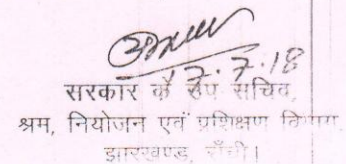 17.7.18
सरकार के उप सचिव,
श्रम, नियोजन एवं प्रशिक्षण विभाग,
झारखण्ड, राँची।